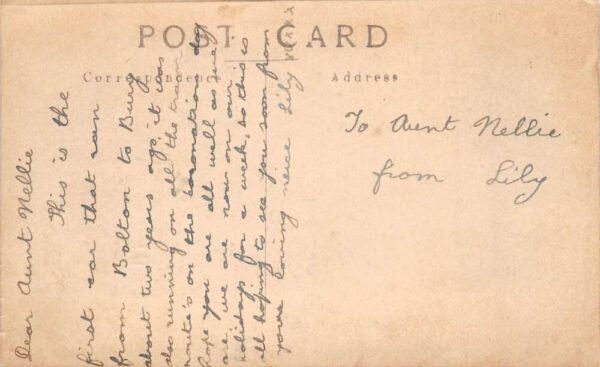 POST CARD
Correspondence
Address
Dear Aunt Nellie
This is the
first car that ran
from Bolton to Bury
about two years ago, it was
also running on all the tram
route's on the coronation day
hope you are all well as we
are, we are now on our
holidays for a week, so this is
all hoping to see you soon from
your loving neice Lily xxxx
To Aunt Nellie
from Lily